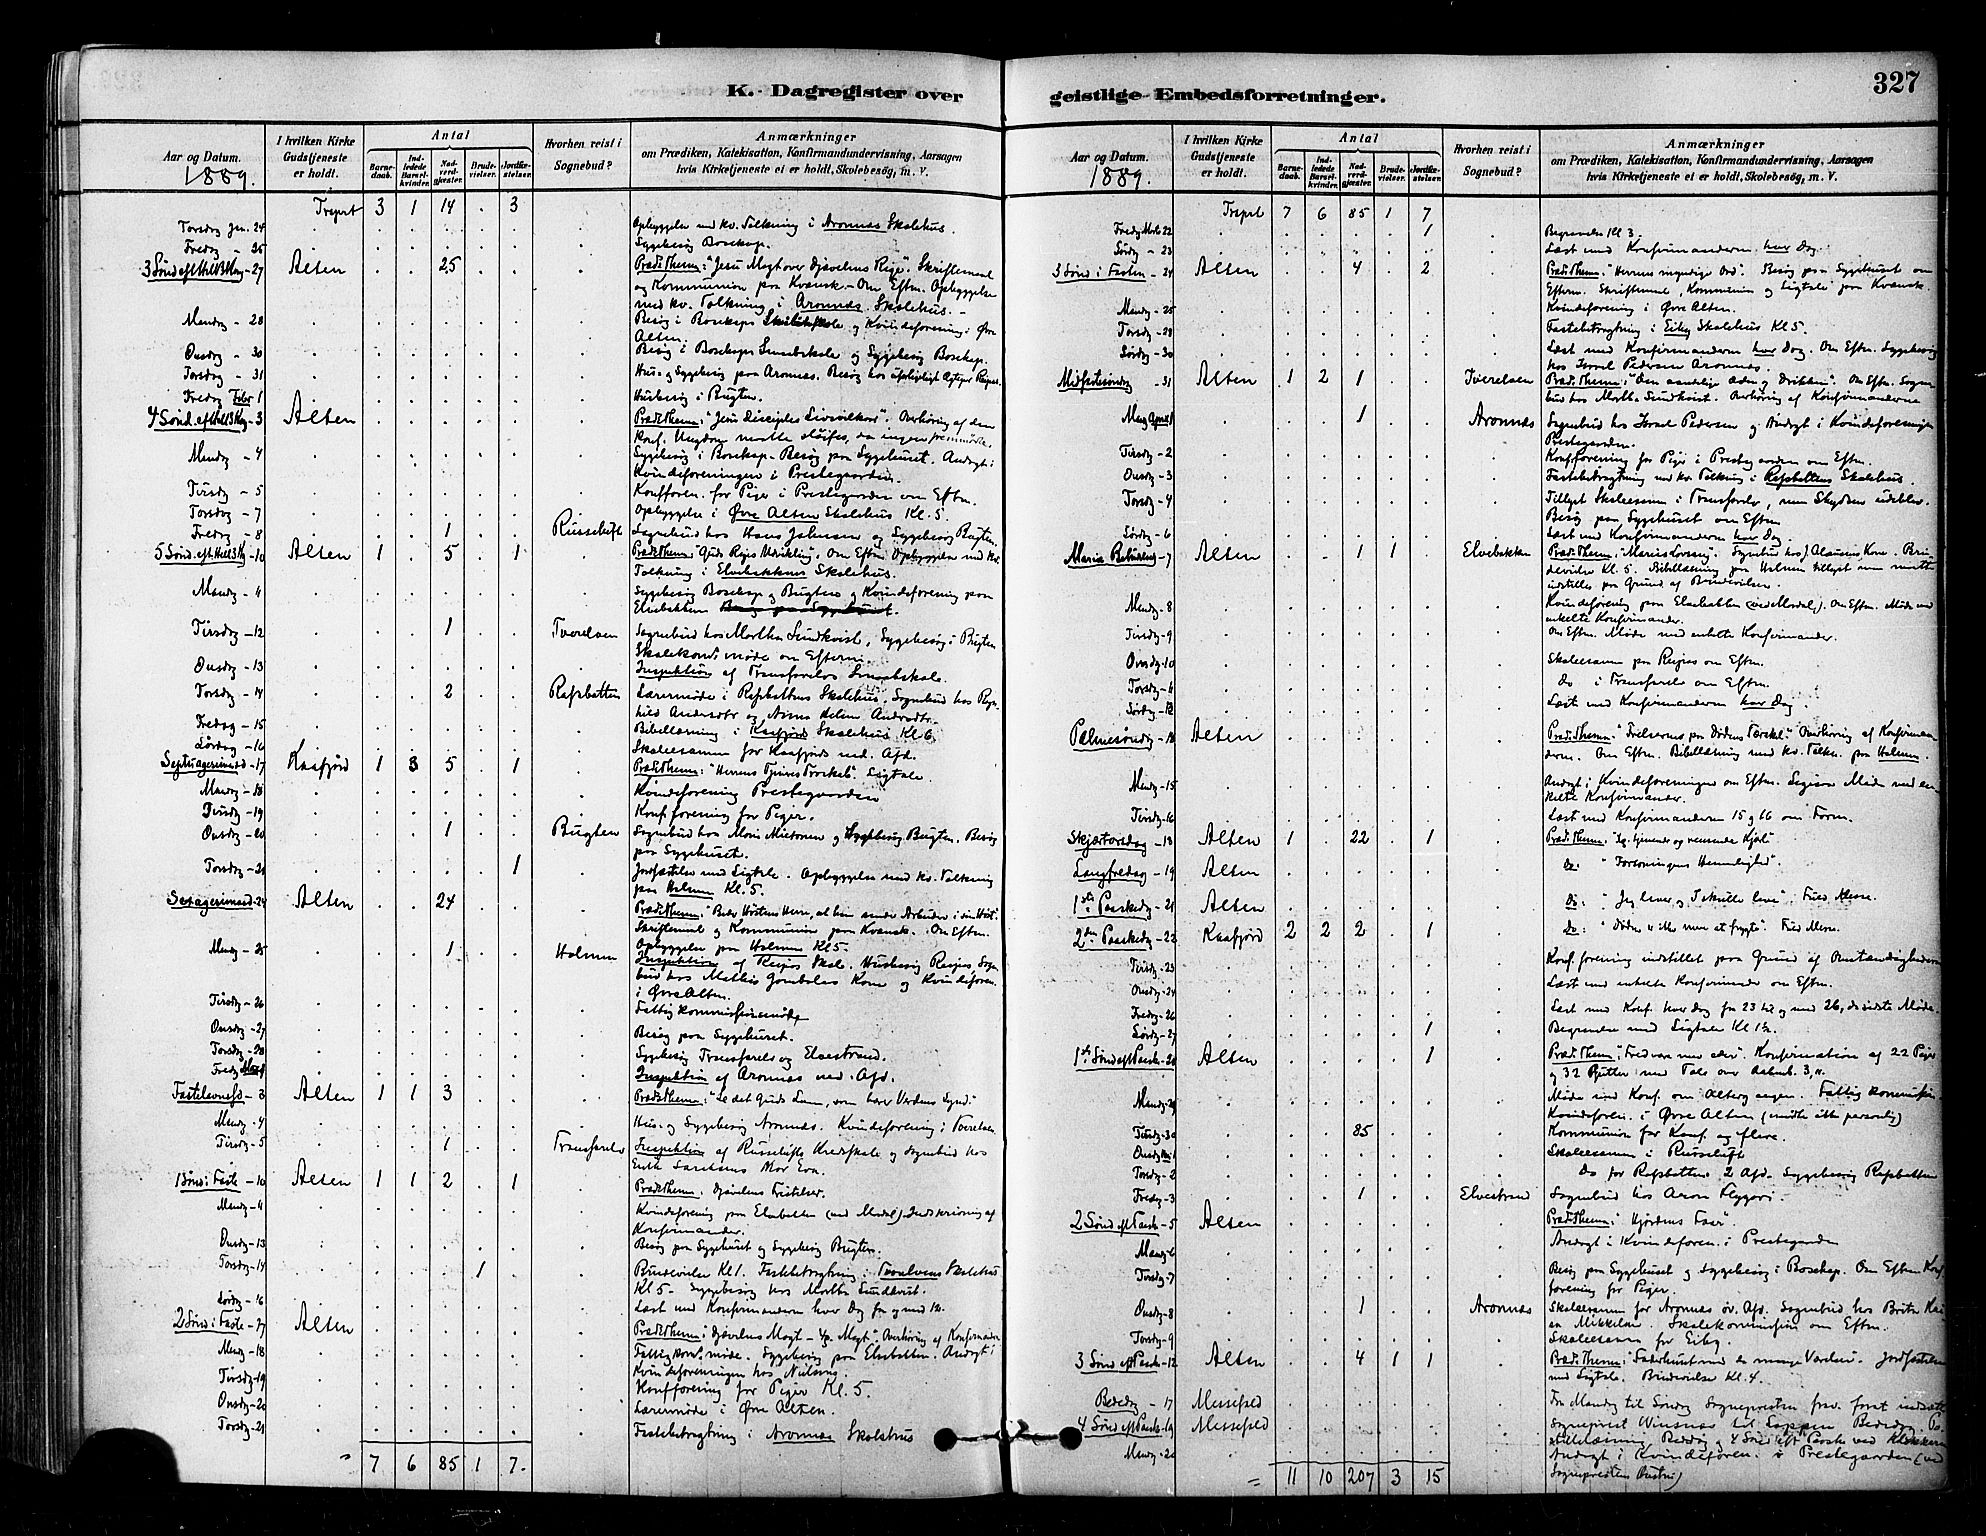 327
K. Dagregister over
Aar og Datum.
1889.
I hvilken Kirke Gudstjeneste er holdt.
Antal
Barne-daab.
Ind-ledede Barsel-kvinder.
Nad-verd-gjæster.
Brude-vielser.
Jordfæ-stelser.
Hvorhen reist i Sognebud?
Anmærkninger
om Prædiken, Katekisation, Konfirmandundervisning, Aarsagen
hvis Kirketjeneste ei er holdt, Skolebesøg, m. V.
Trpst 3 1 14 . 3
Torsdag Jan. 24 Opbyggelse med kv. Tolkning i Aronnæs Skolehus.
Fredag - 25 Sygebesøg Bosekop.
3 Sønd eft Hell 3 Kg - 27 Alten . . 25 Præd. Thema: "Jesu Magt over Djævelens Rige". Skriftemaal
og Kommunion paa Kvænsk. - Om Eftm. Opbyggelse
med kv. Tolkning i Aronnæs Skolehus. -
Mandag - 28 Besøg i Bosekops Skole og Kvindeforening i Øvre
Alten.
Onsdag - 30 Besøg i Bosekops Smaabskole og Sygebesøg Bosekop.
Torsdag - 31 Hus- og Sygebesøg paa Aronnæs. Besøg hos
Fredag Febr 1 Husbesøg i Bugten.
4 Sønd. eft Hell 3 Kg - 3 Alten Præd. Thema: "Jesu Disciples Livsvilkaar". Overhøring af den
konf. Ungdom maatte sløifes, da ingen fremmødte.
Mandag - 4 Sygebesøg i Bosekop - Besøg paa Sygehuset. Andagt i
Kvindeforeningen i Prestegaarden.
Tirsdag - 5 Konfforen. for Piger i Prestegaarden om Eftm.
Torsdag - 7 Opbyggelse i Øvre Alten Skolehus Kl. 5.
Fredag - 8 . . 1 Russeluft Sognebud hos Hans Johnsen og Sygebesøg Bugten.
5 Sønd. eft. Hell 3 Kg - 10 Alten 1 . 5 . 1 Præd. Thema: Guds Riges Udvikling. Om Eftm. Opbyggelse med kv.
Tolkning i Elvebakkens Skolehus.
Mandag - 11 Sygebesøg Bosekop og Bugten og Kvindeforening paa
Elvebakken
Tirsdag - 12 . . 1 Tverelven Sognebud hos Martha Sundkvist, Sygebesøg i Bugten
Skolekom. møde om Efterm.
Onsdag - 13 Inspektion af Transfarelvs Smaabskole.
Torsdag - 14 . . 2 Rafsbotten Lærermøde i Rafsbottens Skolehus, Sognebud hos Ragn-
hild Andersdtr og Anna Helena Andersdtr.
Fredag - 15 Bibellæsning i Kaafjord Skolehus Kl 6.
Lørdag - 16 Skoleexamen for Kaafjords ned. Afd.
Septuagesimasd - 17 Kaafjord 1 3 5 . 1 Præd. Thema: "Herrens Tjeneres Troskab". Ligtale.
Mandag - 18 Kvindeforening Prestegaarden
Tirsdag - 19 Konf. forening for Piger.
Onsdag - 20 . . 1 Bugten Sognebud hos Maria og Sygebesøg Bugten. Besøg
paa Sygehuset.
Torsdag - 21 . . . . 1 Jordfæstelse med Ligtale. Opbyggelse med kv. Tolkning
paa Holmen Kl. 5.
Sexagesimasd - 24 Alten . . 24 Præd. Thema: "Beder Høstens Herre, at han sender Arbeidere i sin Høst".
Skriftemaal og Kommunion paa Kvænsk. Om Eftm.
Opbyggelse paa Holmen Kl 5.
Mandag - 25 . . 1 Holmen Inspektion af Raipas Skole. Husbesøg Raipas Sogne-
bud hos Mathis Kone og Kvindeforen.
i Øvre Alten.
Tirsdag - 26 Fattigkommissionsmøde
Onsdag - 27 Besøg paa Sygehuset.
Torsdag - 28 Sygebesøg Transfarelv og Elvestrand.
Fredag Marts 1 Inspektion af Aronnæs ned. Afd.
Fastelavnssd - 3 Alten 1 1 3 Præd. Thema: "Se det Guds Lam, som bærer Verdens Synd."
Mandag - 4 Hus- og Sygebesøg Aronnæs. Kvindeforening i Tverelven
Tirsdag - 5 . . 1 Transfarelv Inspektion af Russelufts Kredsskole og Sognebud hos
Erik Larsens Mor Eva.
1 Sønd i Faste - 10 Alten 1 1 2 . 1 Præd. Thema: Djævelens Fristelser.
Mandag - 11 Kvindeforening paa Elvebakken (ved Modal). Indskrivning af
Konfirmander.
Onsdag - 13 Besøg paa Sygehuset og Sygebesøg Bugten.
Torsdag - 14 . . . 1 Brudevielse Kl 1. Fastebetragtning i Tverelvens Skolehus
Kl 5 - Sygebesøg hos Martha Sundkvist.
Lørdag - 16 Læst med Konfirmanderne hver Dag fra og med 12.
2 Sønd i Faste - 17 Alten Præd. Thema: Djævelens Magt - Overhøring af Konfirmander
Mandag - 18 Fattigkom. møde. Sygebesøg paa Elvebakken. Andagt i
Kvindeforeningen hos Nielsens.
Tirsdag - 19 Konfforening for Piger Kl. 5.
Onsdag - 20 Lærermøde i Øvre Alten.
Torsdag - 21 Fastebetragtning i Aronnæs Skolehus
= 7 6 85 1 7.
geistlige Embedsforretninger.
Aar og Datum.
1889.
I hvilken Kirke Gudstjeneste er holdt.
Antal
Barne-daab.
Ind-ledede Barsel-kvinder.
Nad-verd-gjæster.
Brude-vielser.
Jordfæ-stelser.
Hvorhen reist i Sognebud?
Anmærkninger
om Prædiken, Katekisation, Konfirmandundervisning, Aarsagen
hvis Kirketjeneste ei er holdt, Skolebesøg, m. V.
Trpst 7 6 85 1 7
Fredag Marts 22 . . . . 1 Begravelse Kl 3.
Lørdag - 23 Læst med Konfirmanderne hver Dag.
3 Sønd i Fasten - 24 Alten . . 4 . 2 Præd. Thema: "Herrens Ord". Besøg paa Sygehuset om
Efterm. Skriftemaal, Kommunion og Ligtale paa Kvænsk.
Mandag - 25 Kvindeforening i Øvre Alten.
Torsdag - 28 Fastebetragtning i Eiby Skolehus Kl 5.
Lørdag - 30 Læst med Konfirmanderne hver Dag. Om Eftm. Sygebesøg
hos Israel Pedersen Aronnæs.
Midfastesøndag - 31 Alten 1 2 1 Tverelven Præd. Thema: "Den aandelige Æden og Drikken". Om Eftm. Sogne-
bud hos Martha Sundkvist. Overhøring af Konfirmanderne
Mandag April 1 . . 1 Aronnæs Sognebud hos Israel Pedersen og Andagt i Kvindeforeningen
Prestegaarden.
Tirsdag - 2 Konfforening for Piger i Prestegaarden om Eftm.
Onsdag - 3 Fastebetragtning med kv. Tolkning i Rafsbottens Skolehus.
Torsdag - 4 Tillyst Skoleexamen i Transfarelv, men Skydsen udeblev.
Besøg paa Sygehuset om Eftm
Lørdag - 6 Læst med Konfirmanderne hver Dag.
Maria Bebudelse - 7 Alten . . 1 1 Elvebakken Præd. Thema: "Marias Lovsang". Sognebud hos J. Kone. Bru-
devielse Kl. 5. Bibellæsning paa Holmen tillyst men maatte
indstilles paa Grund af Brudevielsen.
Mandag - 8 Kvindeforening paa Elvebakken (ved Modal). Om Eftm. Møde med
enkelte Konfirmander.
Tirsdag - 9 Om Eftm. Møde med enkelte Konfirmander.
Onsdag - 10 Skoleexamen paa Raipas om Eftm.
Torsdag - 11 Do i Transfarelv om Eftm.
Lørdag - 13 Læst med Konfirmanderne hver Dag.
Palmesøndag - 14 Alten Præd. Thema: "Frelserens paa Dødens Tærskel" Overhøring af Konfirman-
derne. Om Eftm. Bibellæsning med kv. Tolkn. paa Holmen.
Mandag - 15 Andagt i Kvindeforeningen om Eftm. Ligesaa Møde med en-
kelte Konfirmander.
Tirsdag - 16 Læst med Konfirmanderne 15 og 16 om Form.
Skjærtorsdag - 18 Alten 1 . 22 . 1 Præd. Thema: tjenende og rensende Kjærl."
Langfredag - 19 Alten Do: "Forsoningens Hemmelighed".
1ste Paaskedag - 21 Alten Do: "Jeg lever og I skulle leve". Fuld Messe.
2den Paaskedag - 22 Kaafjord 2 2 2 . 1 Do: "Døden er ikke mere at frygte". Fuld Messe.
Tirsdag - 23 Konf. forening indstillet paa Grund af Omstændighederne
Onsdag - 24 Læst med enkelte Konfirmander om Eftm.
Fredag - 26 Læst med Konf. hver Dag fra 23 til og med 26, da sidste Møde.
Lørdag - 27 . . . . 1 Begravelse med Ligtale Kl 1½.
1ste Sønd eft Paaske - 28 Alten . . . . 1 Præd. Thema: "Fred være med eder". Konfirmation af 22 Piger
og 32 Gutter med Tale over Aabenb. 3, 11.
Mandag - 29 Møde med Konf. om Altergangen. Fattigkommission
Kvindeforen. i Øvre Alten (mødte ikke personlig)
Tirsdag - 30 . . 85 Kommunion for Konf. og flere.
Onsdag Mai 1 Skoleexamen i Russeluft
Torsdag - 2 Do for Rafsbotten 2 Afd. Sygebesøg Rafsbotten
Fredag - 3 . . 1 Elvestrand Sognebud hos Aron Flygari.
2 Sønd eft Paaske - 5 Alten Præd. Thema: "Hjordens Faar".
Mandag - 6 Andagt i Kvindeforen. i Prestegaarden
Tirsdag - 7 Besøg paa Sygehuset og Sygebesøg i Bosekop. Om Eftm Konf.
forening for Piger.
Onsdag - 8 . . 1 Aronnæs Skoleexamen for Aronnæs øv. Afd. Sognebud hos Brita
Mikkelsen. Skolekommission om Eftm.
Torsdag - 9 Skoleexamen for Eiby.
3 Sønd eft Paaske - 12 Alten . . 4 1 1 Præd. Thema: "Faderhuset med de mange Værelser". Jordfæstelse
med Ligtale. Brudevielse Kl. 4.
Bededag - 17 Messefald Fra Mandag til Søndag Sognepresten frav. foret indsatte
4 Sønd eft Paaske - 19 Messefald Sogneprest Winsnes til Loppen Bededag Po-
stillelæsning Bededag og 4 Sønd eft Paaske ved Klokkeren
Mandag - 20 Andagt i Kvindeforen. i Prestegaarden (ved
Sogneprestens Hustru)
= 11 10 207 3 15